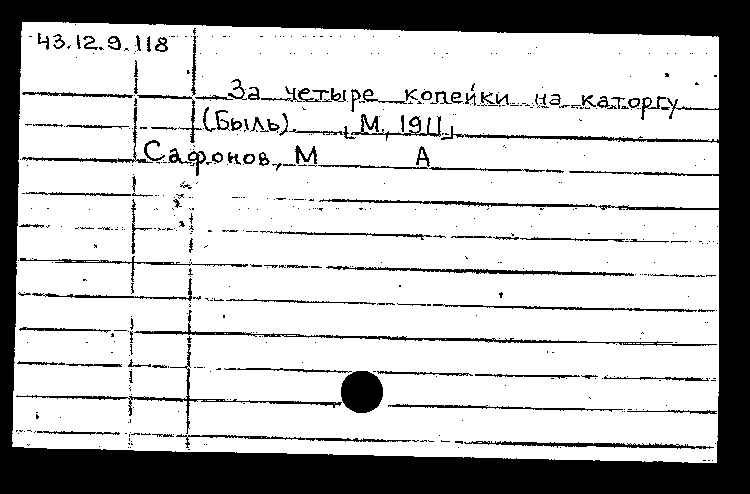 43.12.9.118
За четыре копейки на каторгу
(Быль). [М., 1911]
Сафонов, М А